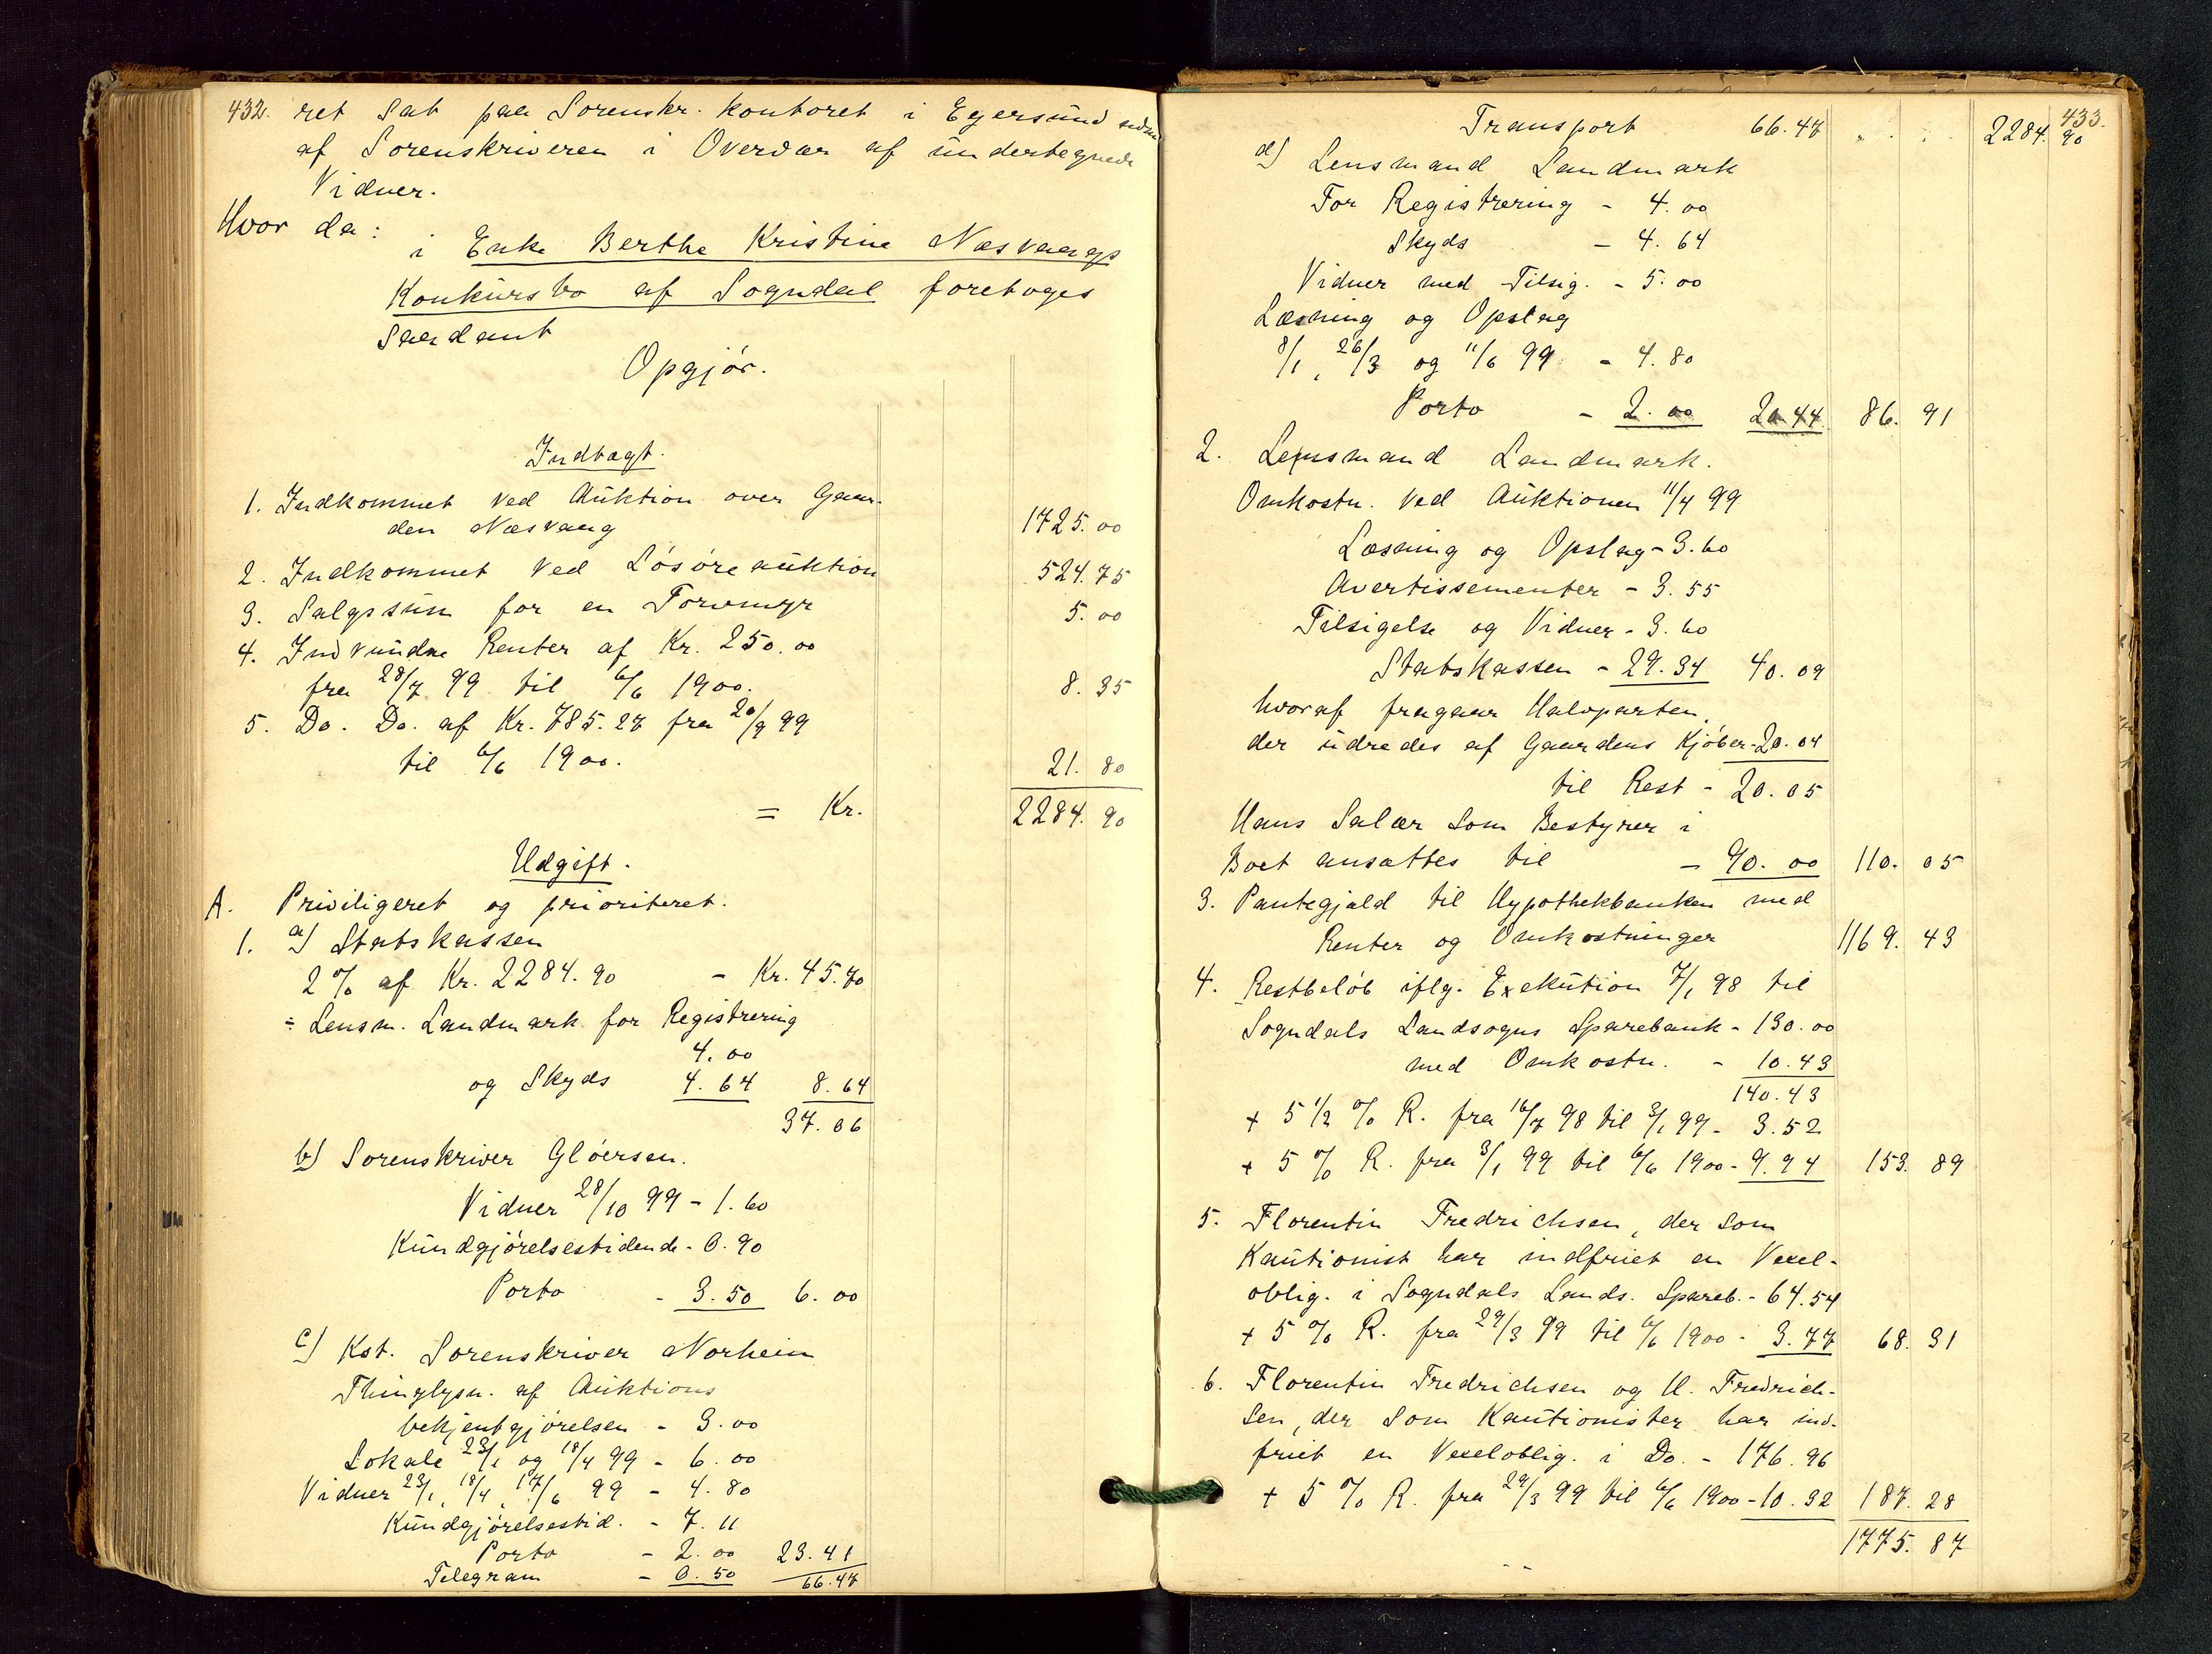 432. ret sat paa Sorenskr. kontoret i Egersund
af Sorenskriveren i Overvær af undertegnede
Vidner.
Hvor da:
i Enke Berthe Kristine Næsvaags
Konkursbo af Sogndal foretoges
saadant
Opgjör.
Indtægt.
1. Indkommet ved Auktion over Gaar-
den Næsvaag 1725.00
2. Indkommet ved Lösöreauktion 524.75
3. Salgssum for en Torvmyr 5.00
4. Indvundne Renter af Kr. 250.00
fra 28/7 99 til 6/6 1900. 8.35
5. Do. Do. af Kr. 785.27 fra 20/9 99
til 6/6 1900. 21.80
= Kr. 2284.90
Udgift.
A. Priviligeret og prioriteret.
1. a) Statskassen
2 % af Kr. 2284.90 - Kr. 45.70
÷ Lensm. Landmark for Registrering
4.00
og Skyds 4.64 8.64
37.06
b) Sorenskriver Glöersen.
Vidner 28/10 99 - 1.60
Kundgjörelsestidende - 0.90
Porto - 3.50 6.00
c) Kst. Sorenskriver Norheim
Thinglysn. af Auktions
bekjentgjörelsen - 3.00
Lokale 23/1 og 18/4 99 - 6.00
Vidner 23/1, 18/4, 17/6 99 - 4.80
Kundgjörelsestid. - 7.11
Porto - 2.00 23.41
Telegram - 0.50 66.47
433.
Transport 66.47 2284.90
d) Lensmand Landmark
For Registrering - 4.00
Skyds - 4.64
Vidner med Tilsig. - 5.00
Læsning og Opslag
8/1, 26/3 og 11/6 99 - 4.80
Porto - 2.00 20.44 86.91
2. Lensmand Landmark.
Omkostn. ved Auktionen 11/4 99
Læsning og Opslag - 3.60
Avertissementer - 3.55
Tilsigelse og Vidner - 3.60
Statskassen - 29.34 40.09
hvoraf fragaar Halvparten,
der udredes af Gaardens Kjöber - 20.04
til Rest - 20.05
Hans Salær som Bestyrer i
Boet ansættes til - 90.00 110.05
3. Pantegjæld til Hypothekbanken med
Renter og Omkostninger 1169.43
4. Restbelöb iflg. Exekution 7/1 98 til
Sogndals Landsogns Sparebank - 130.00
med Omkostn. - 10.43
140.43
+ 5 1/2 % R. fra 16/7 98 til 3/1 99 - 3.52
+ 5 % R. fra 3/1 99 til 6/6 1900 - 9.94 153.89
5. Florentin Fredrichsen, der som
Kautionist har indfriet en Vexel-
oblig. i Sogndals Lands. Spareb. - 64.54
+ 5 % R. fra 29/3 99 til 6/6 1900 - 3.77 68.31
6. Florentin Fredrichsen og H. Fredrich-
sen, der som Kautionister har ind-
friet en Vexeloblig. i Do. - 176.96
+ 5 % R. fra 29/3 99 til 6/6 1900 - 10.32 187.28
1775.87